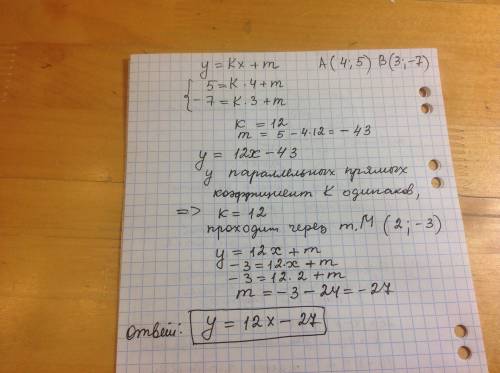 y = Kx + m A(4;5) B(3;-7)
{ 5 = K·4 + m
-7 = K·3 + m
K = 12
m = 5 - 4·12 = -43
y = 12x - 43
у параллельных прямых
коэффициент K одинаков,
=> K = 12
проходит через т.M (2; -3)
y = 12x + m
-3 = 12·x + m
-3 = 12·2 + m
m = -3 - 24 = -27
Ответ: y = 12x - 27